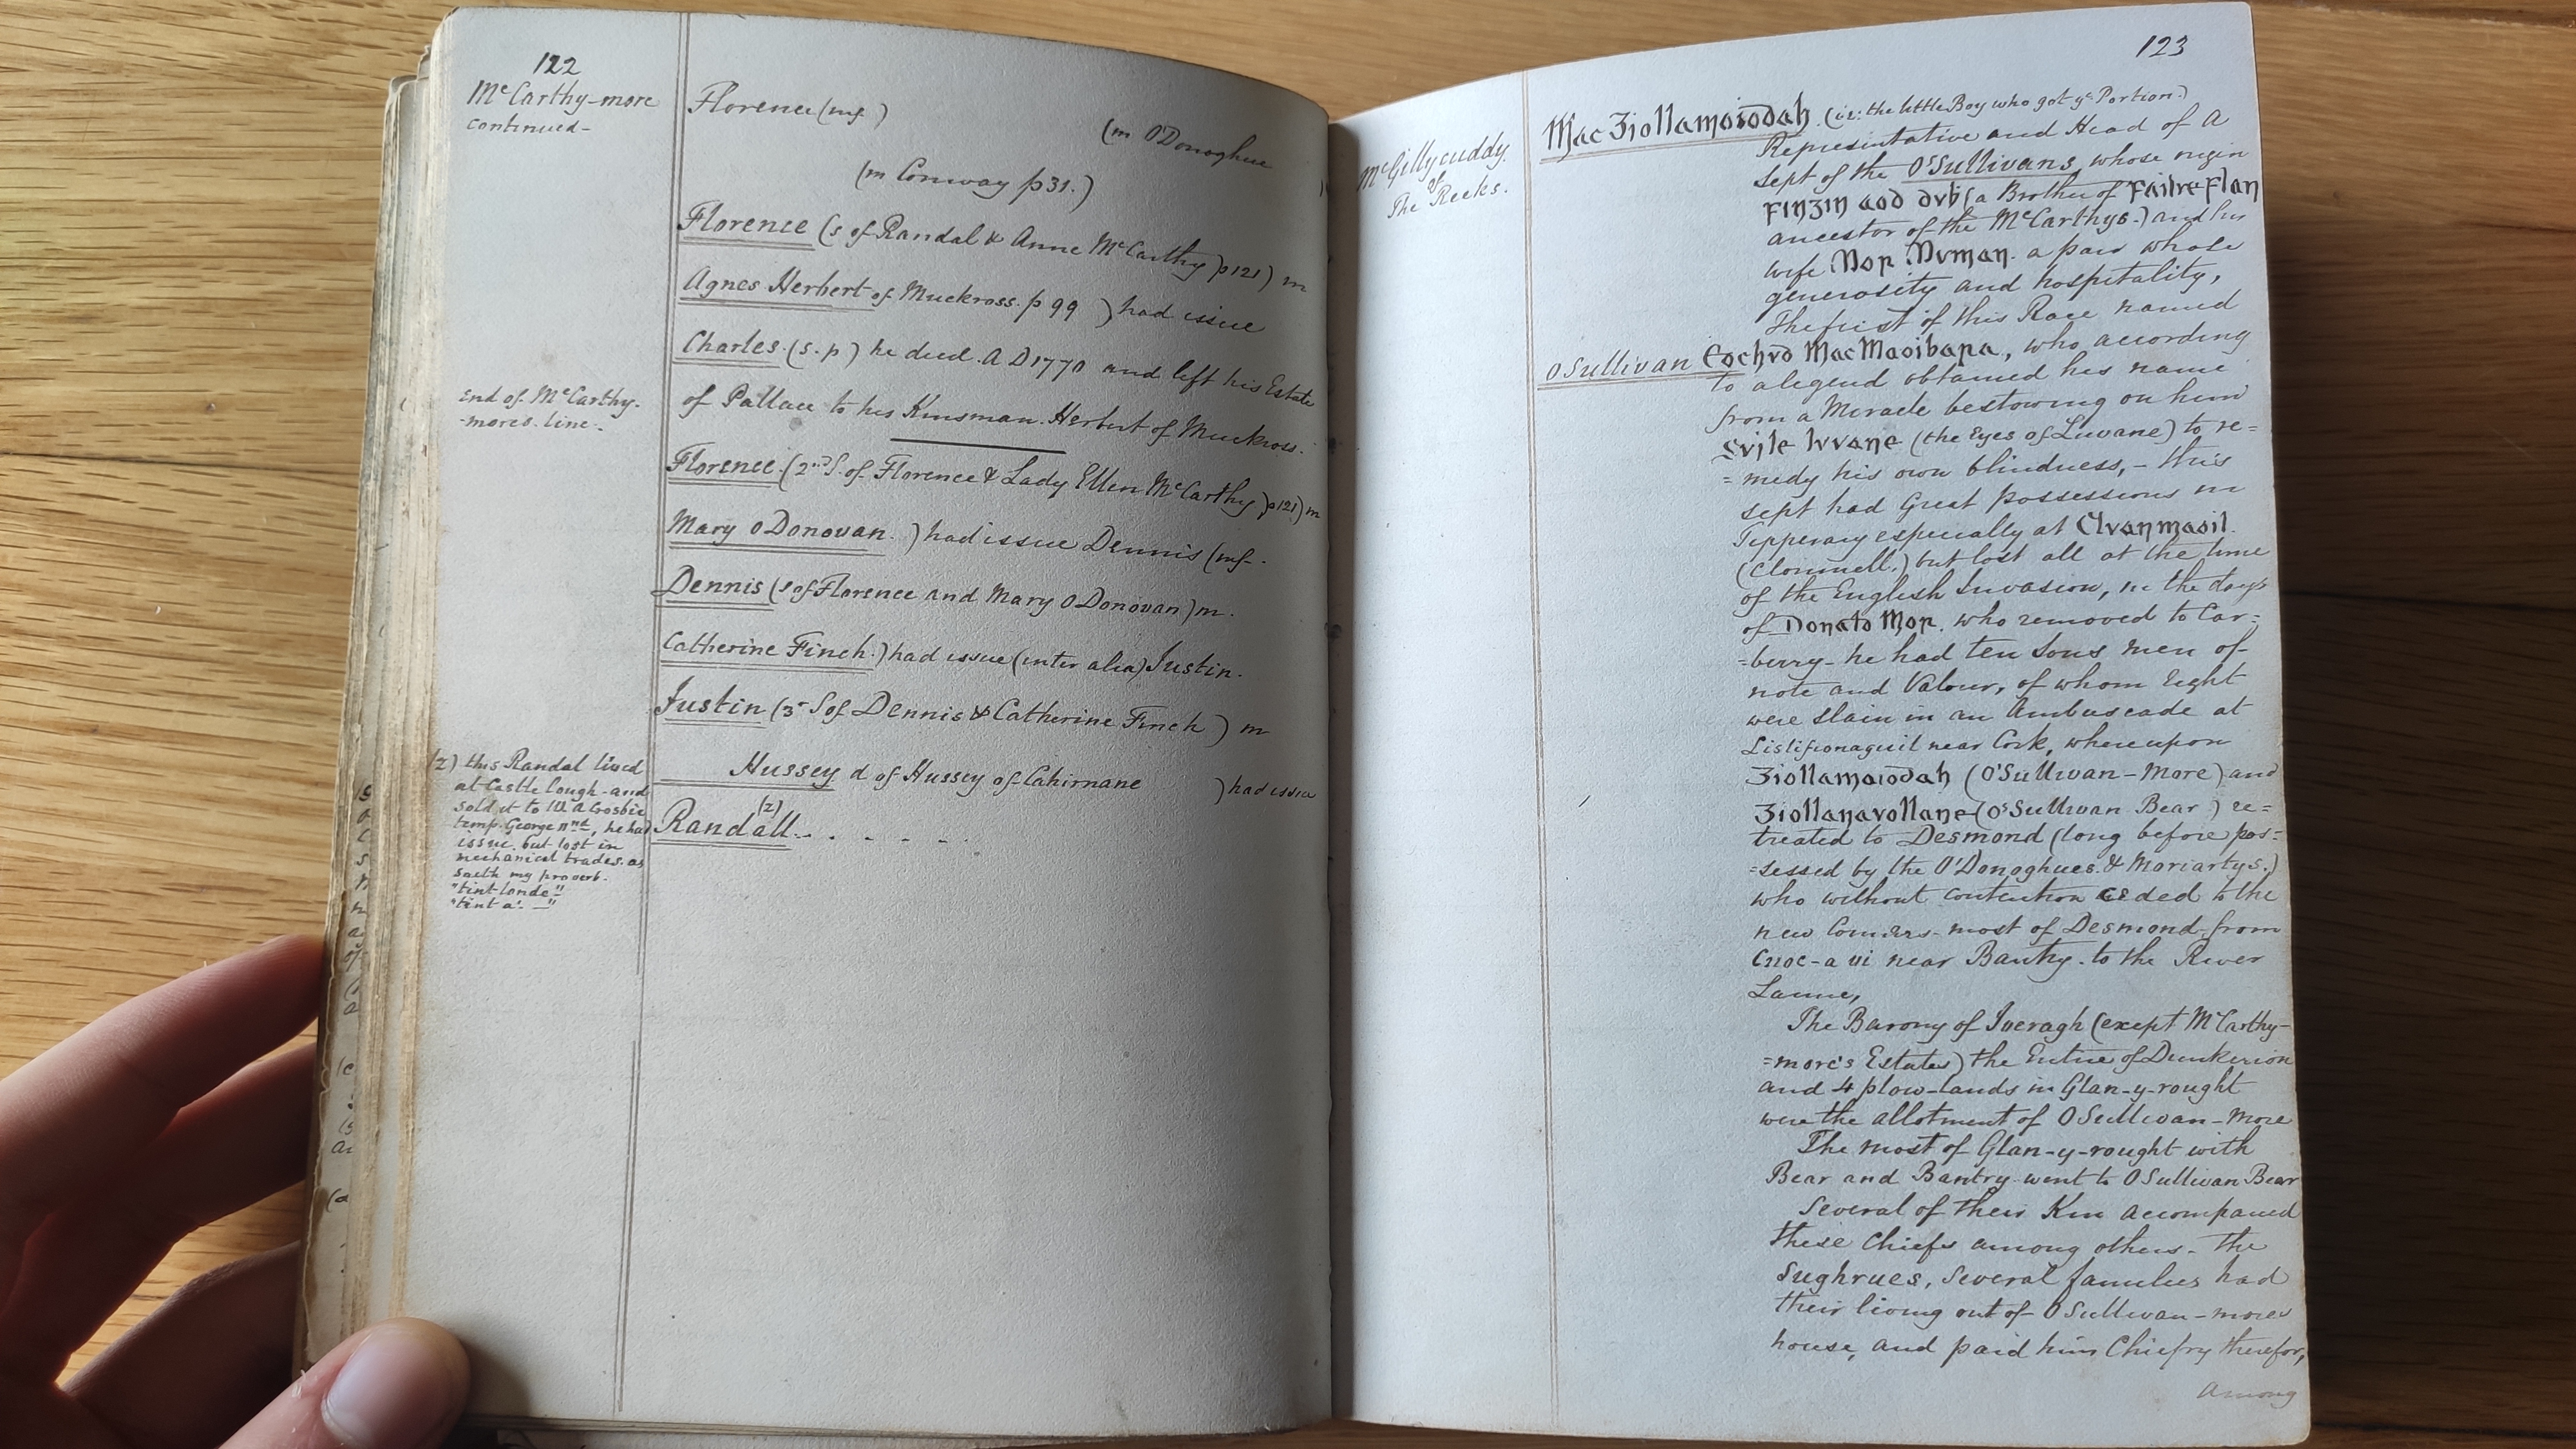 122
McCarthy-more
continued-
Florence (mf )
(m O'Donoghue
(m Conway p31.)
Florence (s of Randal & Anne McCarthy p121) m
Agnes Herbert of Muckross. p 99 ) had issue
Charles. (s.p) he died. A D 1770 and left his Estate
of Pallace to his Kinsman. Herbert of Muckross.
End of McCarthy-
-mores. line.
Florence. (2nd S. of Florence & Lady Ellen McCarthy p121) m
Mary ODonovan. ) had issue Dennis (mf-.
Dennis (s of Florence and Mary ODonovan) m.
Catherine Finch.) had issue (inter alia) Justin.
Justin (3r S of Dennis & Catherine Finch ) m
Hussey d of Hussey of Cahirnane ) had issue
Randall (z) . . - - - -
(z) this Randal lived
at Castle Lough-and
sold it to Wm a Crosbie
temp. George IInd, he had
issue. but lost in
mechanical trades. as
saeth my proverb.
"tint lande"
"tint a'. —"
123
McGillycuddy.
of
The Reeks.
Mac Ʒiollamoiodah (ie: the little Boy who got ye Portion.)
Representative and Head of a
sept of the O'Sullivans whose origin
FinƷin aod dub (a Brother of Failbe Flan
ancestor of the McCarthys.) and his
wife Mor Muman. a pair whose
generosity and hospitality,
The first of this Race named
OSullivan Eochud Mac Maoibara, who according
to a legend obtained his name
from a Miracle bestowing on him
Suile luvane (the Eyes of Luvane) to re=
=medy his own blindness,- this
sept had Great possessions in
Tipperary especially at Cluanmaoil.
(Clonmell.) but lost all at the time
of the English Invasion, in the days
of Donato Mor. who removed to Car=
=berry- he had ten Sons men of
note and Valour, of whom Eight
were slain in an Ambuscade at
near Cork, whereupon
Ʒiollamoiodah (O'Sullivan-More) and
Ʒiollanavollane (O'Sullivan Bear) re=
treated to Desmond (long before pos=
=sessed by the O'Donoghues. & Moriartys.)
who without contention ceded to the
new Comers- most of Desmond from
Cnoc-a vi near Bantry. to the River
Laune,
The Barony of Iveragh (except McCarthy-
=more's Estates) the Entire of Dunkerion
and 4 plow-lands in Glan-y-rought
were the allotment of OSullivan-More
The most of Glan-y-rought with
Bear and Bantry went to OSullivan Bear
Several of their Kin accompanied
these Chiefs among others- the
Sughrues, several families had
their living out of OSullivan-mores
house, and paid him Chiefry therefor,
Among